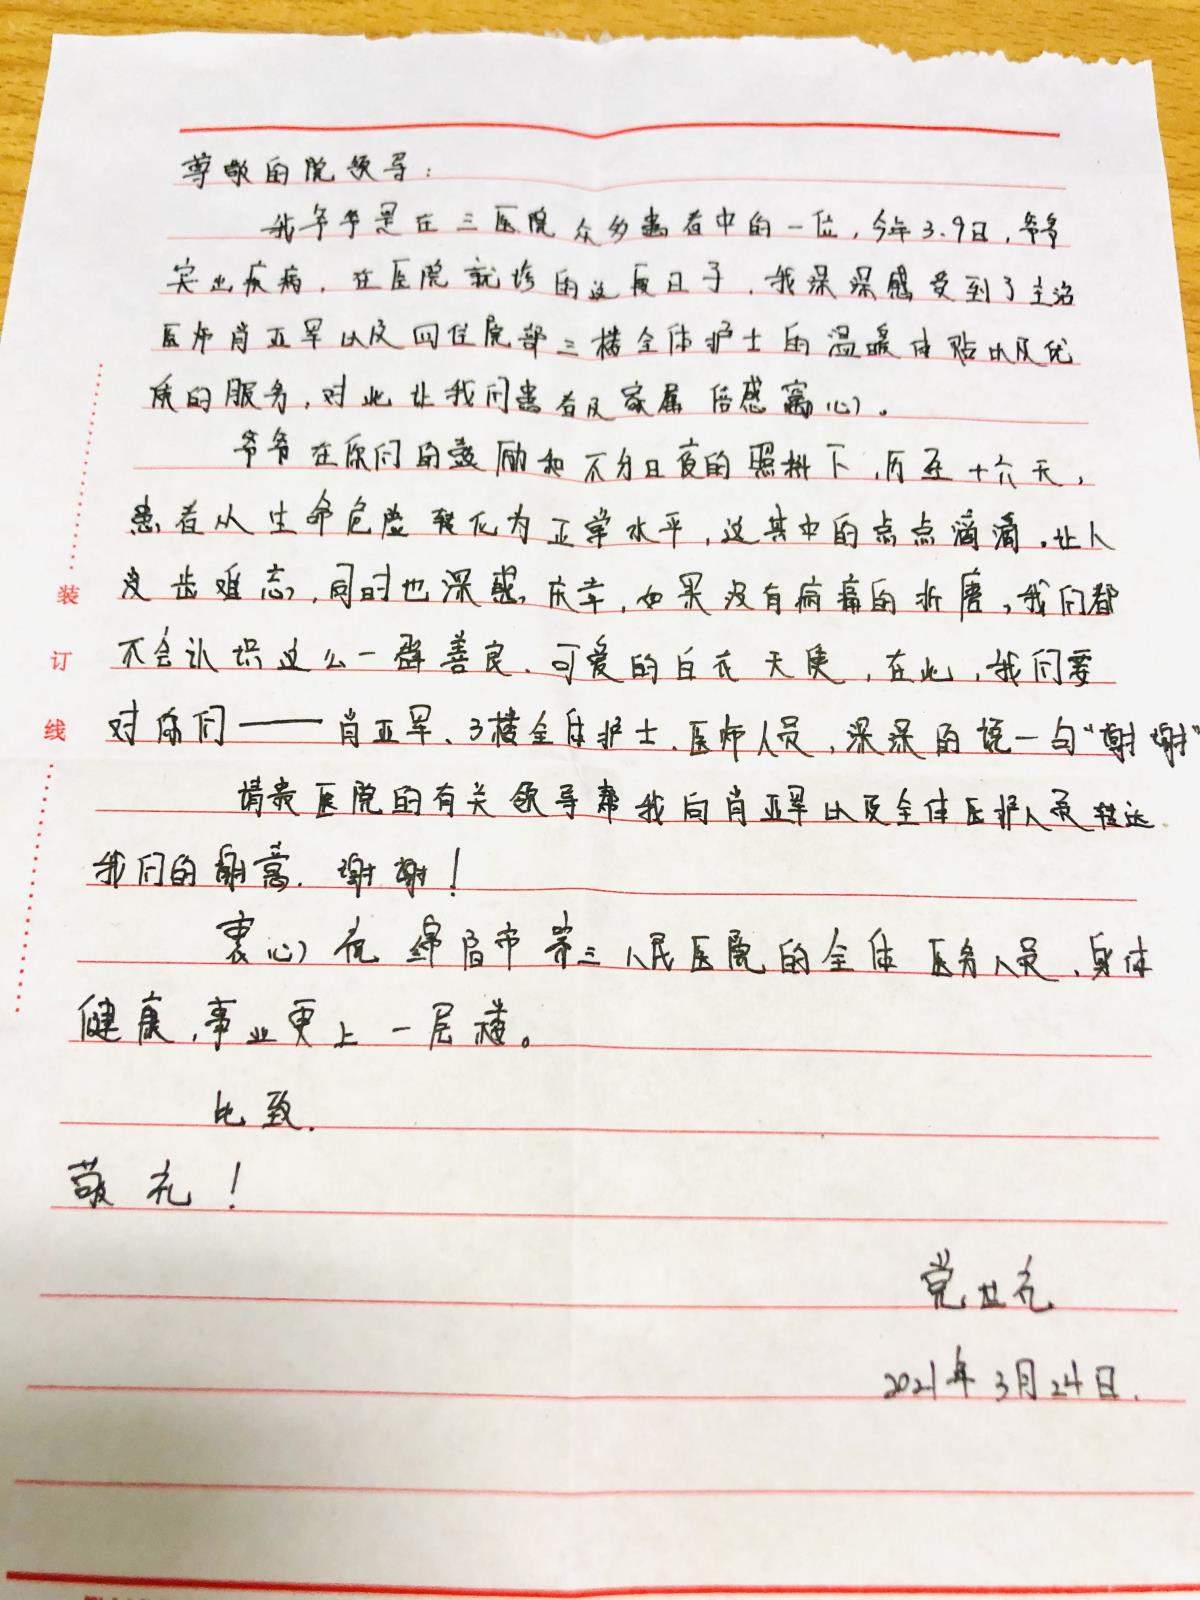 尊敬的院领导：
我爷爷是在三医院众多患者中的一位，今年3.9日，爷爷
突出疾病，在医院就诊的这段日子，我深深感受到了主治
医师肖亚军以及四住院部三楼全体护士的温暖体贴以及优
质的服务，对此让我们患者及家属倍感窝心。
爷爷在你们的鼓励和不分日夜的照料下，历至十六天，
患者从生命危险转化为正常水平，这其中的点点滴滴，让人
没齿难忘，同时也深感庆幸，如果没有病痛的折磨，我们都
不会认识这么一群善良、可爱的白衣天使，在此，我们要
对你们——肖亚军、3楼全体护士、医师人员，深深的说一句“谢谢”
请贵医院的有关领导帮我向肖亚军以及全体医护人员转达
我们的谢意.谢谢！
衷心祝绵阳市第三人民医院的全体医务人员、身体
健康，事业更上一层楼。
此致.
敬礼！
党世礼
2021年3月24日.
装
订
线